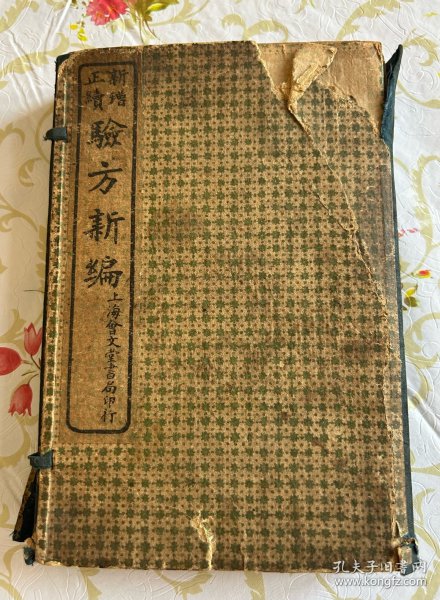 新增
正續
驗方新編
上海會文堂書局印行
孔夫子旧书网
kongfz.com